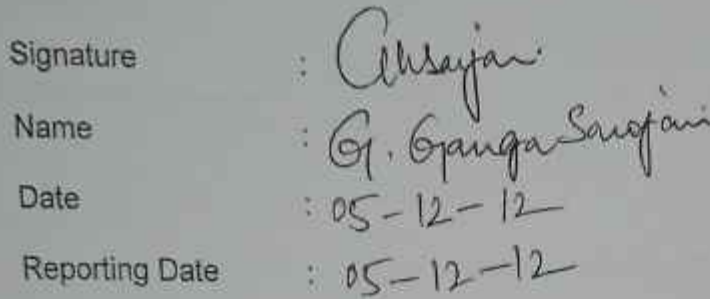 Signature :
Name : G. Ganga Sarojani
Date : 05-12-12
Reporting Date : 05-12-12